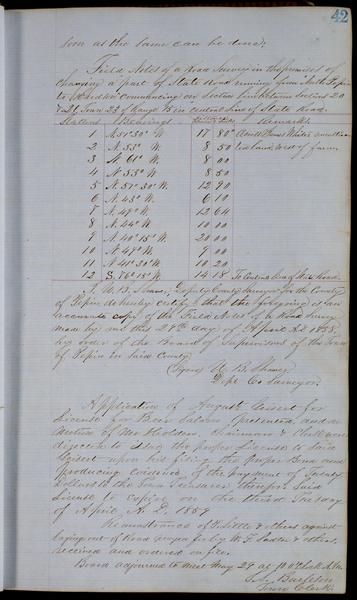 42
soon as the same can be done.
Field Notes of a Road Survey in the premises of
changing a part of State Road running from
to commencing on Section line between Sections 20
& 21, Town 23 of Range 15 in central line of State Road.
Stations Bearings Remarks.
1 N 51° 30' W. 17 80
2 N. 53° W. 8 50
3 N. 61° W. 8 00
4 N. 55° W. 8 50
5 N. 57° 30' W. 12 90
6 N. 43° W. 6 10
7 N. 49° W. 12 64
8 N. 44° W. 10 00
9 N. 40° 15' W. 20 00
10 N. 47° W. 9 00
11 N. 41° 30' W. 10 20
12 S. 76° 15' W. 14 18 To Central line of State Road.
I, W. B. Deputy County Surveyor for the County
of Pepin do hereby certify that the foregoing is an
accurate copy of the Field Notes of a Road Survey
made by me this 28th day of April A.D. 1858,
by order of the Board of Supervisors of the Town
of Pepin in said County
(Signed) W. B.
Dept. Co Surveyor.
Application of August for
License for Beer Saloon, presented, and on
motion of Mr Holden Chairman & Clerk were
directed to issue the proper License to said
upon his filing the proper Bond and
producing evidence of the payment of Twenty
dollars to the Town Treasurer therefor, said
License to expire on the third Tuesday
of April, A.D. 1859
Remonstrance of & others against
laying out of Road prayed for by W. F. & others,
received and ordered on file.
Board adjourned to meet May 29 at 10 O'Clock A.M.
Town Clerk.